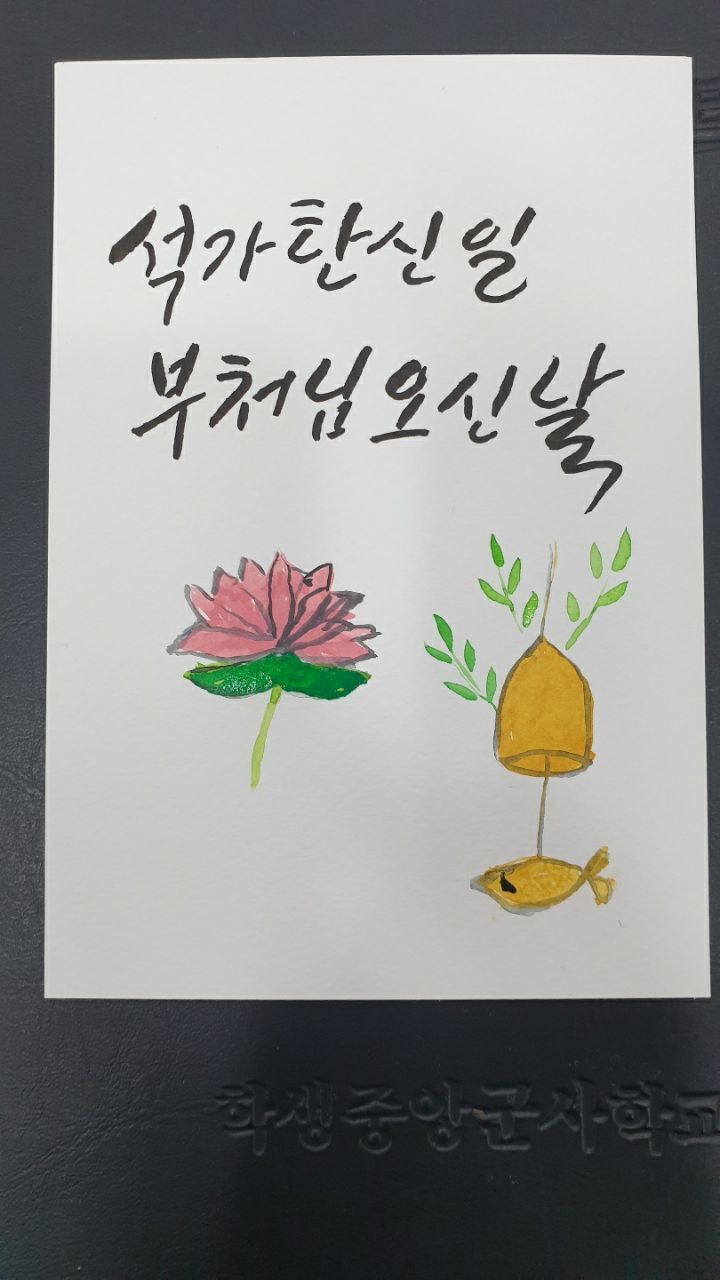 석가탄신일
부처님오신날
학생중앙군사학교